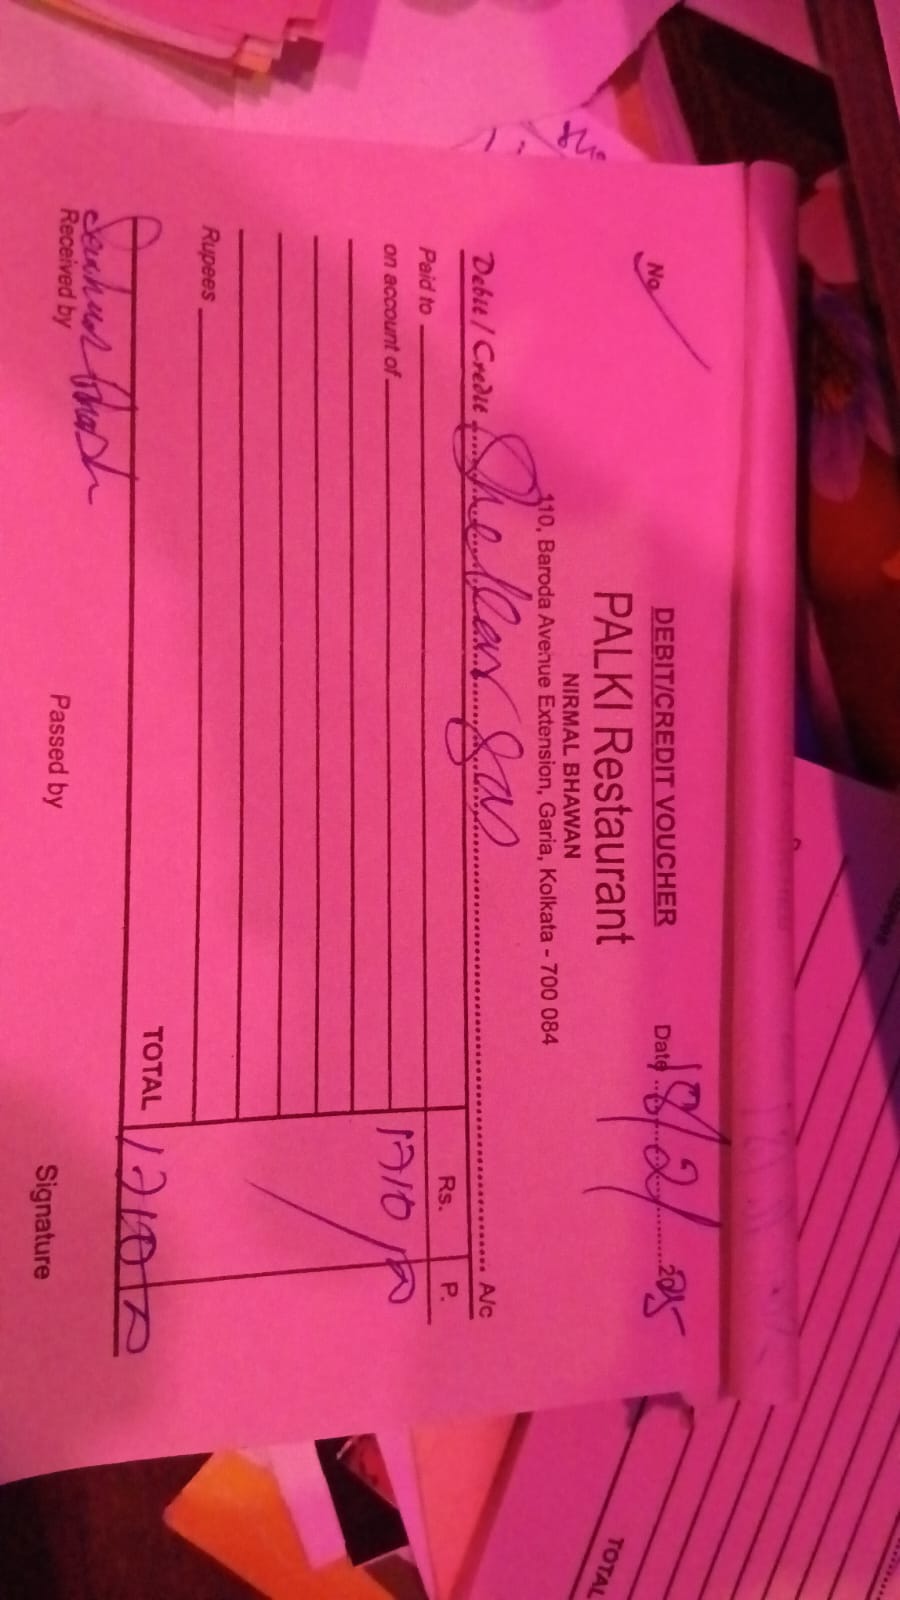 DEBIT/CREDIT VOUCHER
No. Date 18/2/2025
PALKI Restaurant
NIRMAL BHAWAN
110, Baroda Avenue Extension, Garia, Kolkata - 700 084
Debit / Credit A/c
Rs. P.
Paid to
on account of 1710/00
Rupees
TOTAL 1710/00
Received by Passed by Signature
TOTAL